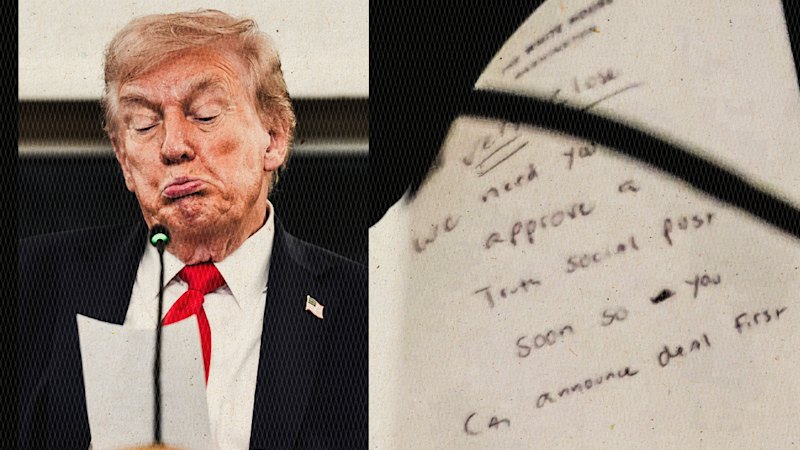 WHITE HOUSE
WASHINGTON
Very close
we need you
approve a
Truth Social post
soon so you
can announce deal first